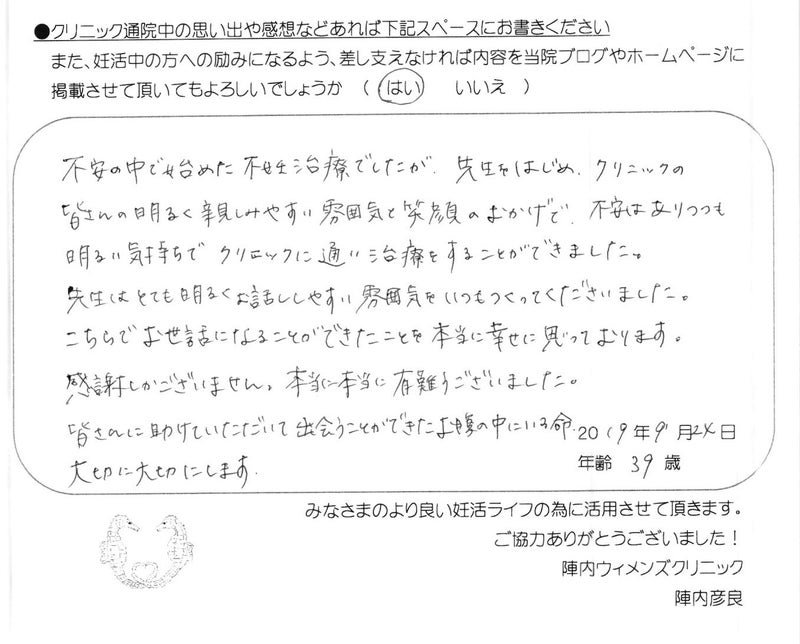 ●クリニック通院中の思い出や感想などあれば下記スペースにお書きください
また、妊活中の方への励みになるよう、差し支えなければ内容を当院ブログやホームページに
掲載させて頂いてもよろしいでしょうか （ はい いいえ ）
不安の中で始めた不妊治療でしたが、先生をはじめ、クリニックの
皆さんの明るく親しみやすい雰囲気と笑顔のおかげで、不安はありつつも
明るい気持ちでクリニックに通い治療をすることができました。
先生はとても明るくお話ししやすい雰囲気をいつもつくってくださいました。
こちらでお世話になることができたことを本当に幸せに思っております。
感謝しかございません。本当に本当に有難うございました。
皆さんに助けていただいて出会うことができたお腹の中にいる命、
大切に大切にします。
2019年9月24日
年齢 39歳
みなさまのより良い妊活ライフの為に活用させて頂きます。
ご協力ありがとうございました！
陣内ウィメンズクリニック
陣内彦良